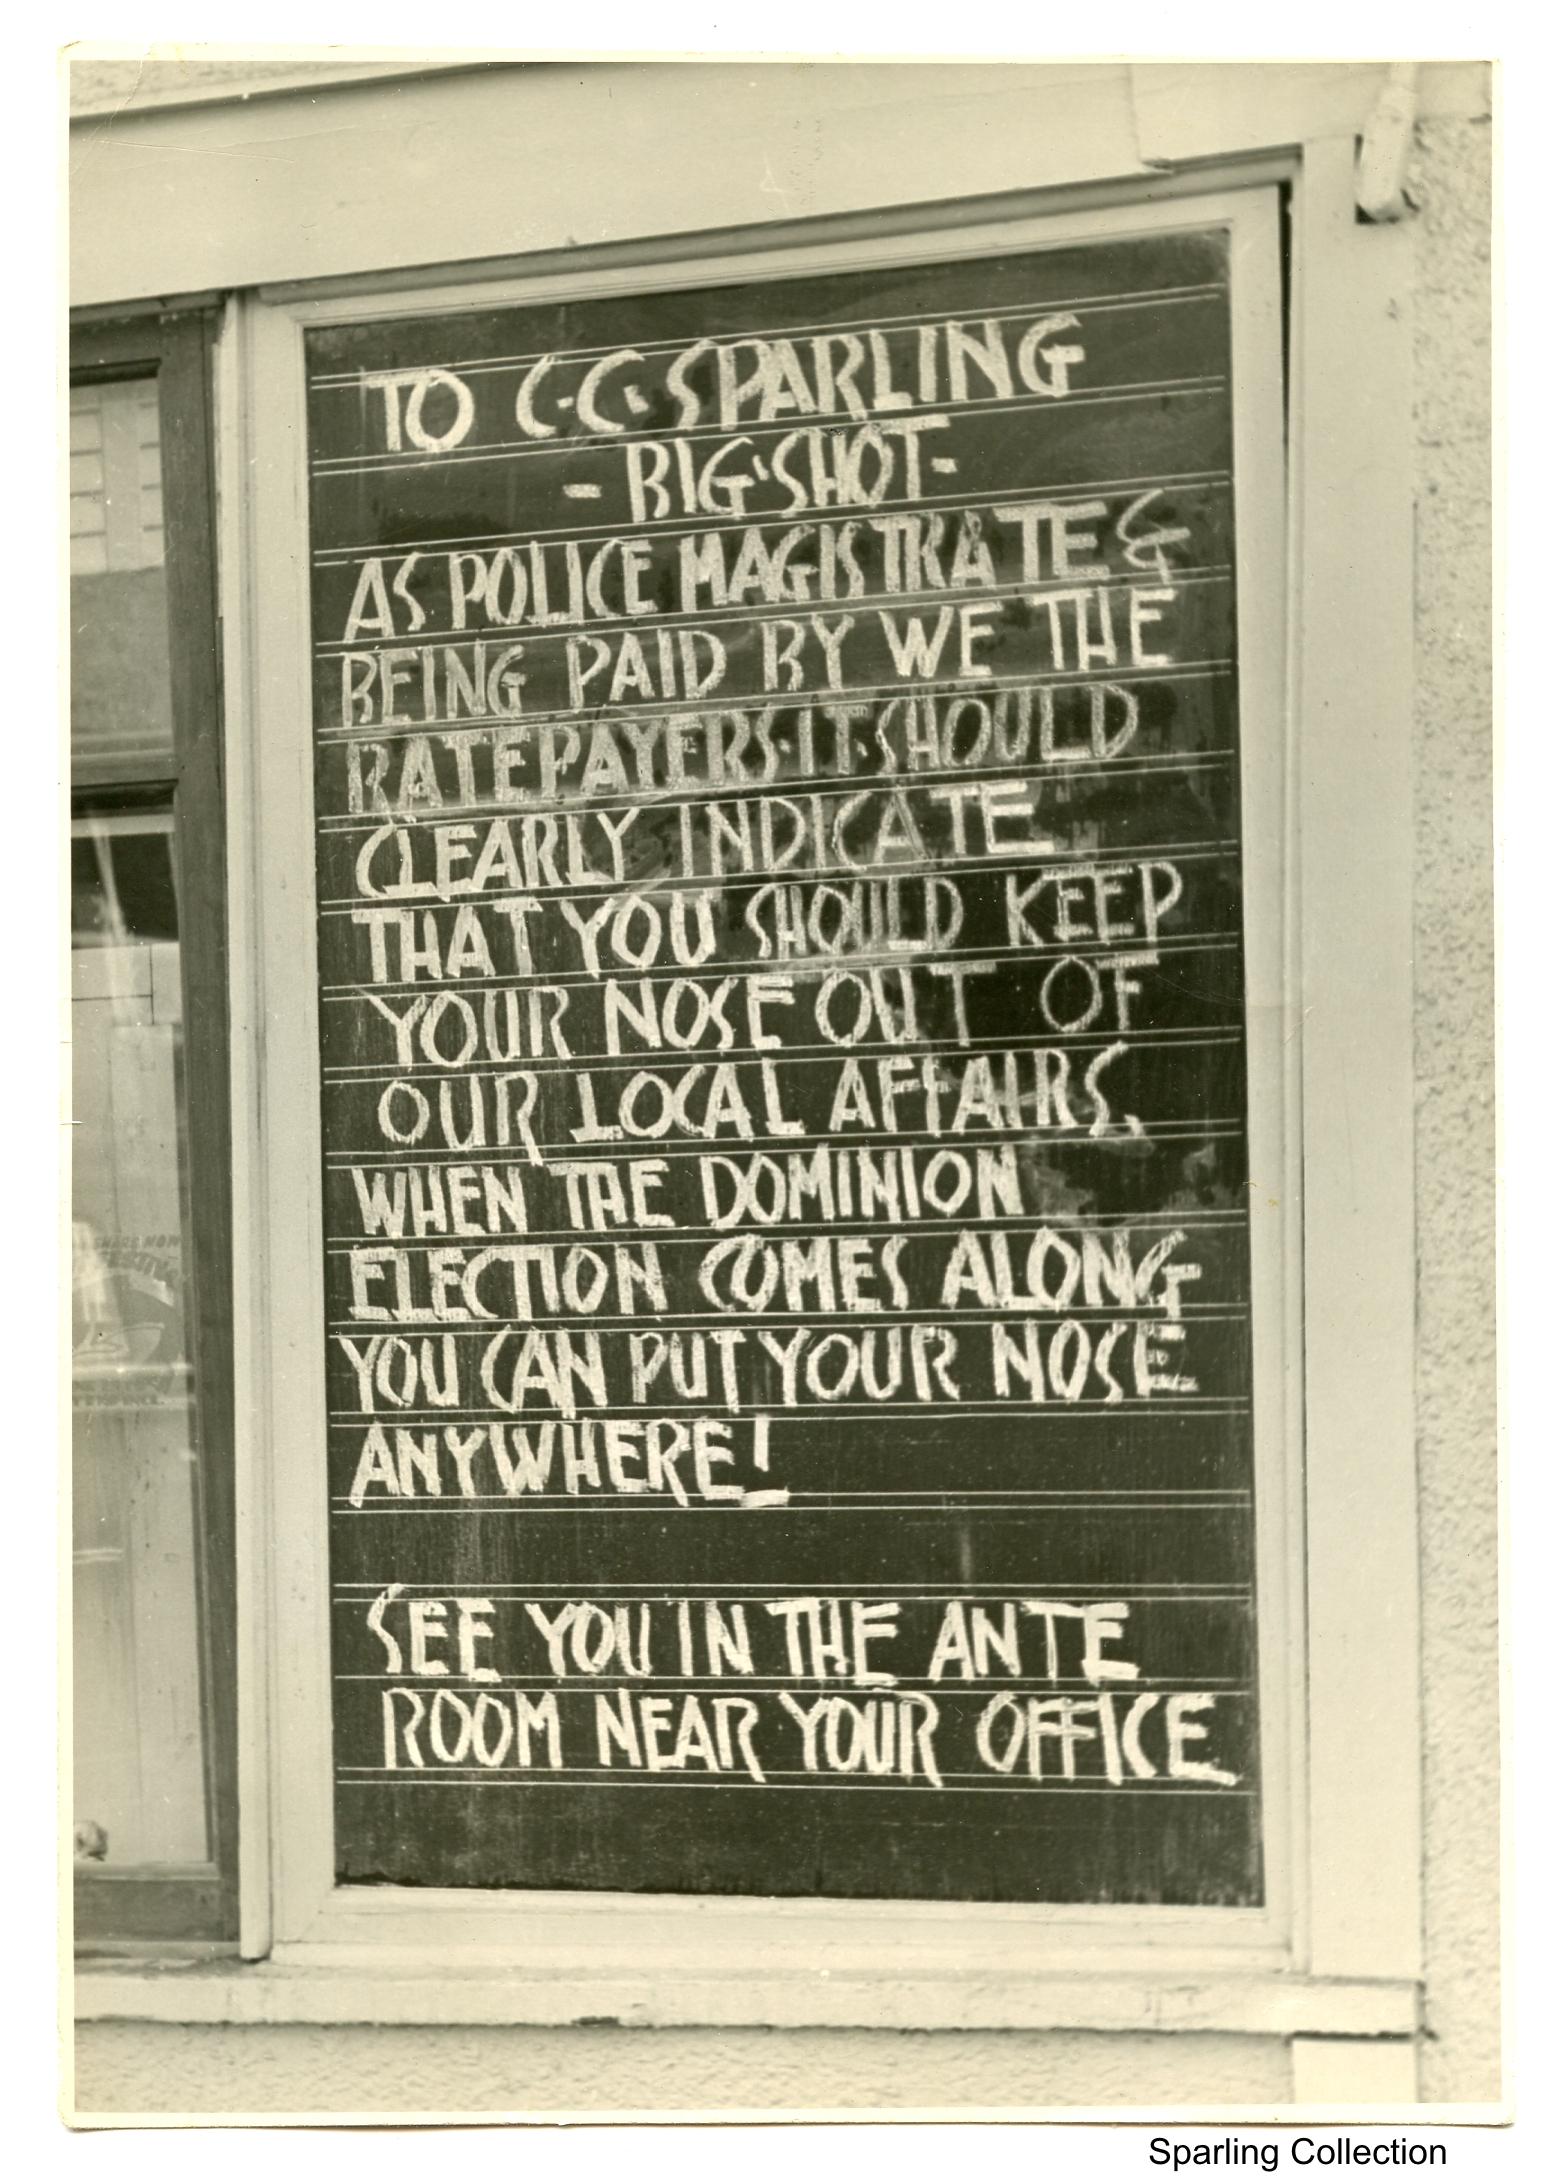 TO C.C. SPARLING
- BIG SHOT -
AS POLICE MAGISTRATE &
BEING PAID BY WE THE
RATEPAYERS·IT·SHOULD
CLEARLY INDICATE
THAT YOU SHOULD KEEP
YOUR NOSE OUT OF
OUR LOCAL AFFAIRS.
WHEN THE DOMINION
ELECTION COMES ALONG
YOU CAN PUT YOUR NOSE
ANYWHERE!
SEE YOU IN THE ANTE
ROOM NEAR YOUR OFFICE
Sparling Collection